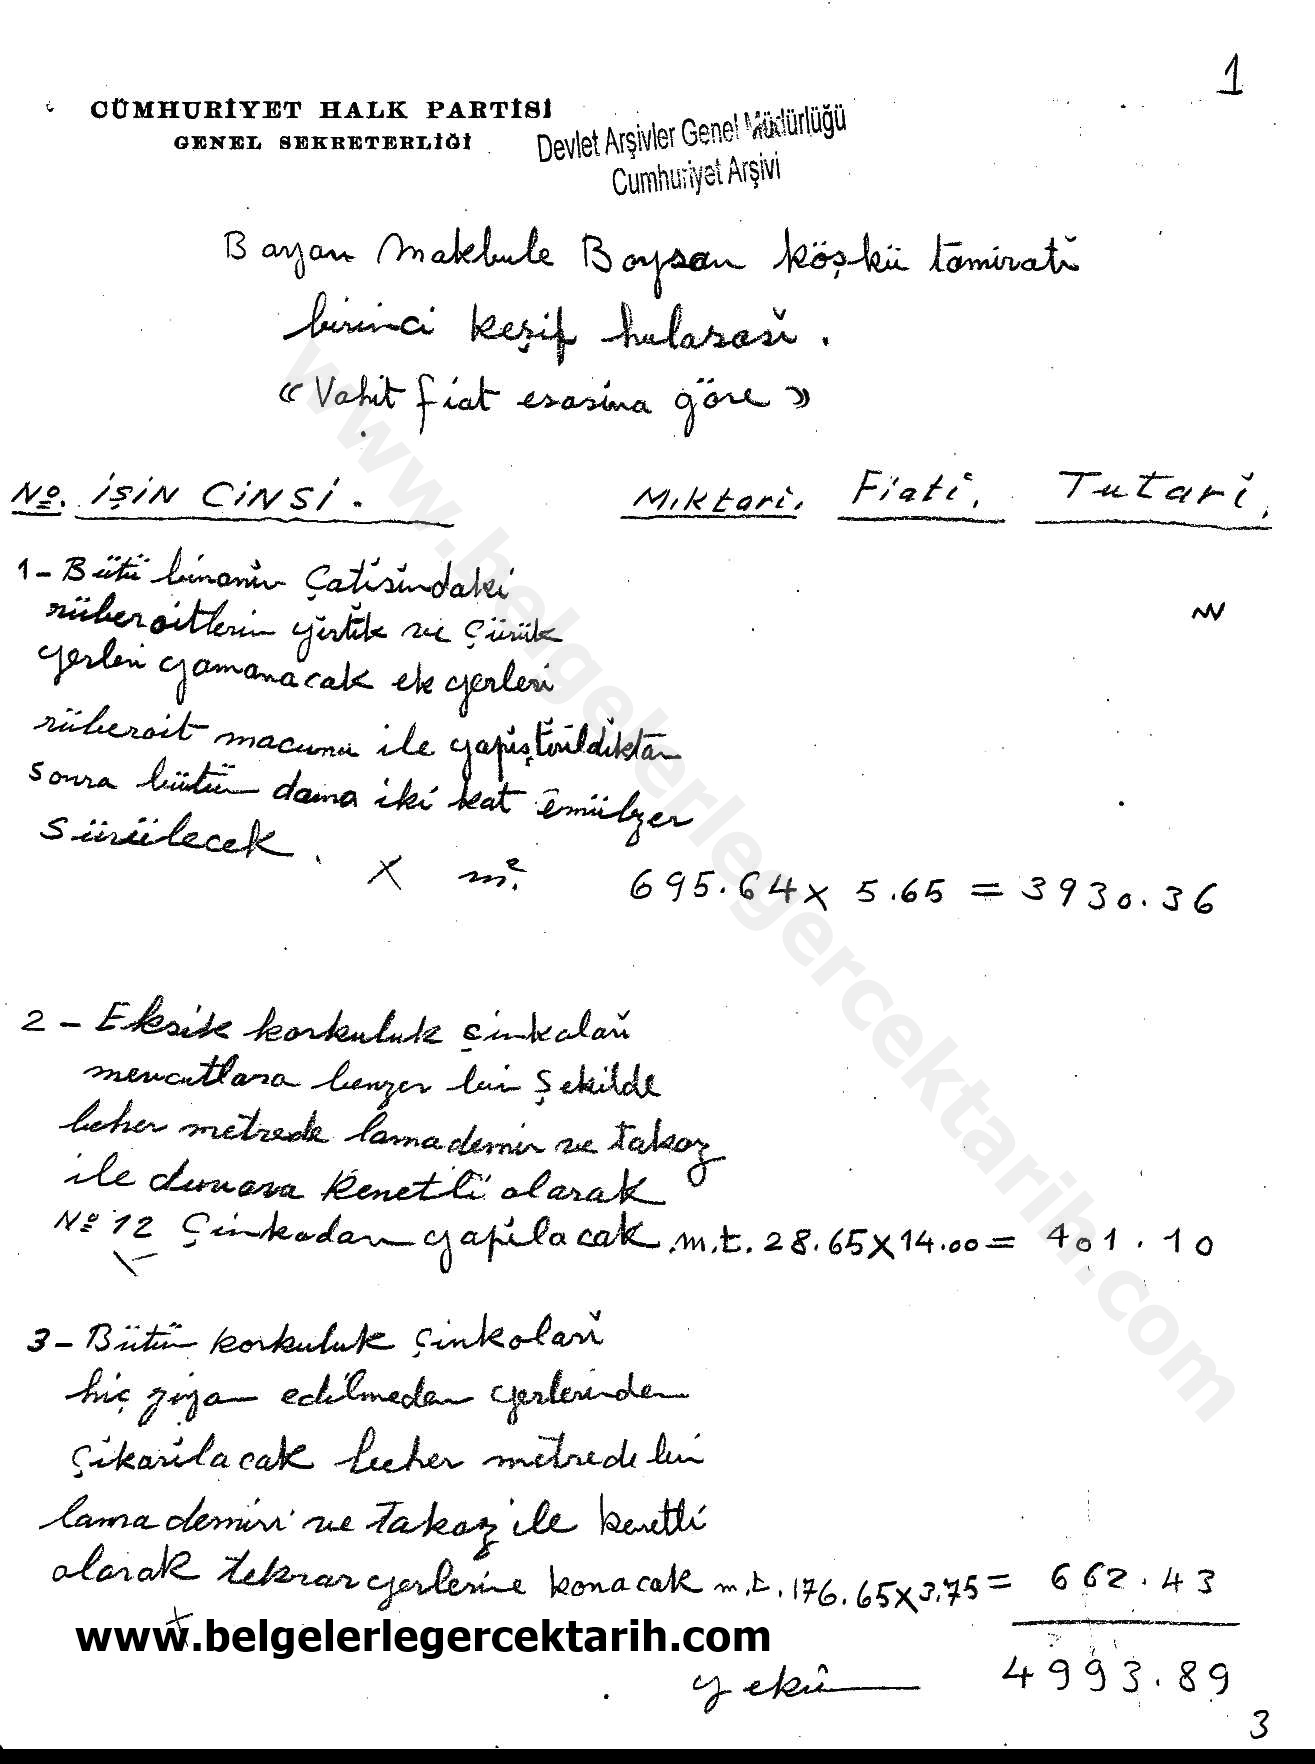 1
CÜMHURİYET HALK PARTİSİ
GENEL SEKRETERLİĞİ
Devlet Arşivler Genel Müdürlüğü
Cumhuriyet Arşivi
Bayan Makbule Boysan köşkü tamiratı
birinci keşif hulasası.
«Vahit fiat esasına göre»
№. İŞİN CİNSİ. Miktarı. Fiatı. Tutarı.
1- Bütü binanın çatısındaki
rüberoitlerin yırtık ve çürük
yerleri yamanacak ek yerleri
rüberoit macunu ile yapıştırıldıktan
sonra bütün dama iki kat emülzer
sürülecek. X m². 695.64 x 5.65 = 3930.36
2- Eksik korkuluk çinkoları
mevcutlara benzer bir şekilde
beher metrede lama demir ve takoz
ile duvara kenetli olarak
№ 12 Çinkodan yapılacak. m.t. 28.65 x 14.00 = 401.10
3- Bütün korkuluk çinkoları
hiç ziyan edilmeden yerlerinden
çıkarılacak beher metrede bir
lama demiri ve takoz ile kenetli
olarak tekrar yerlerine konacak m.t. 176.65 x 3.75 = 662.43
www.belgelerlegercektarih.com
yekûn 4993.89
3
www.belgelerlegercektarih.com